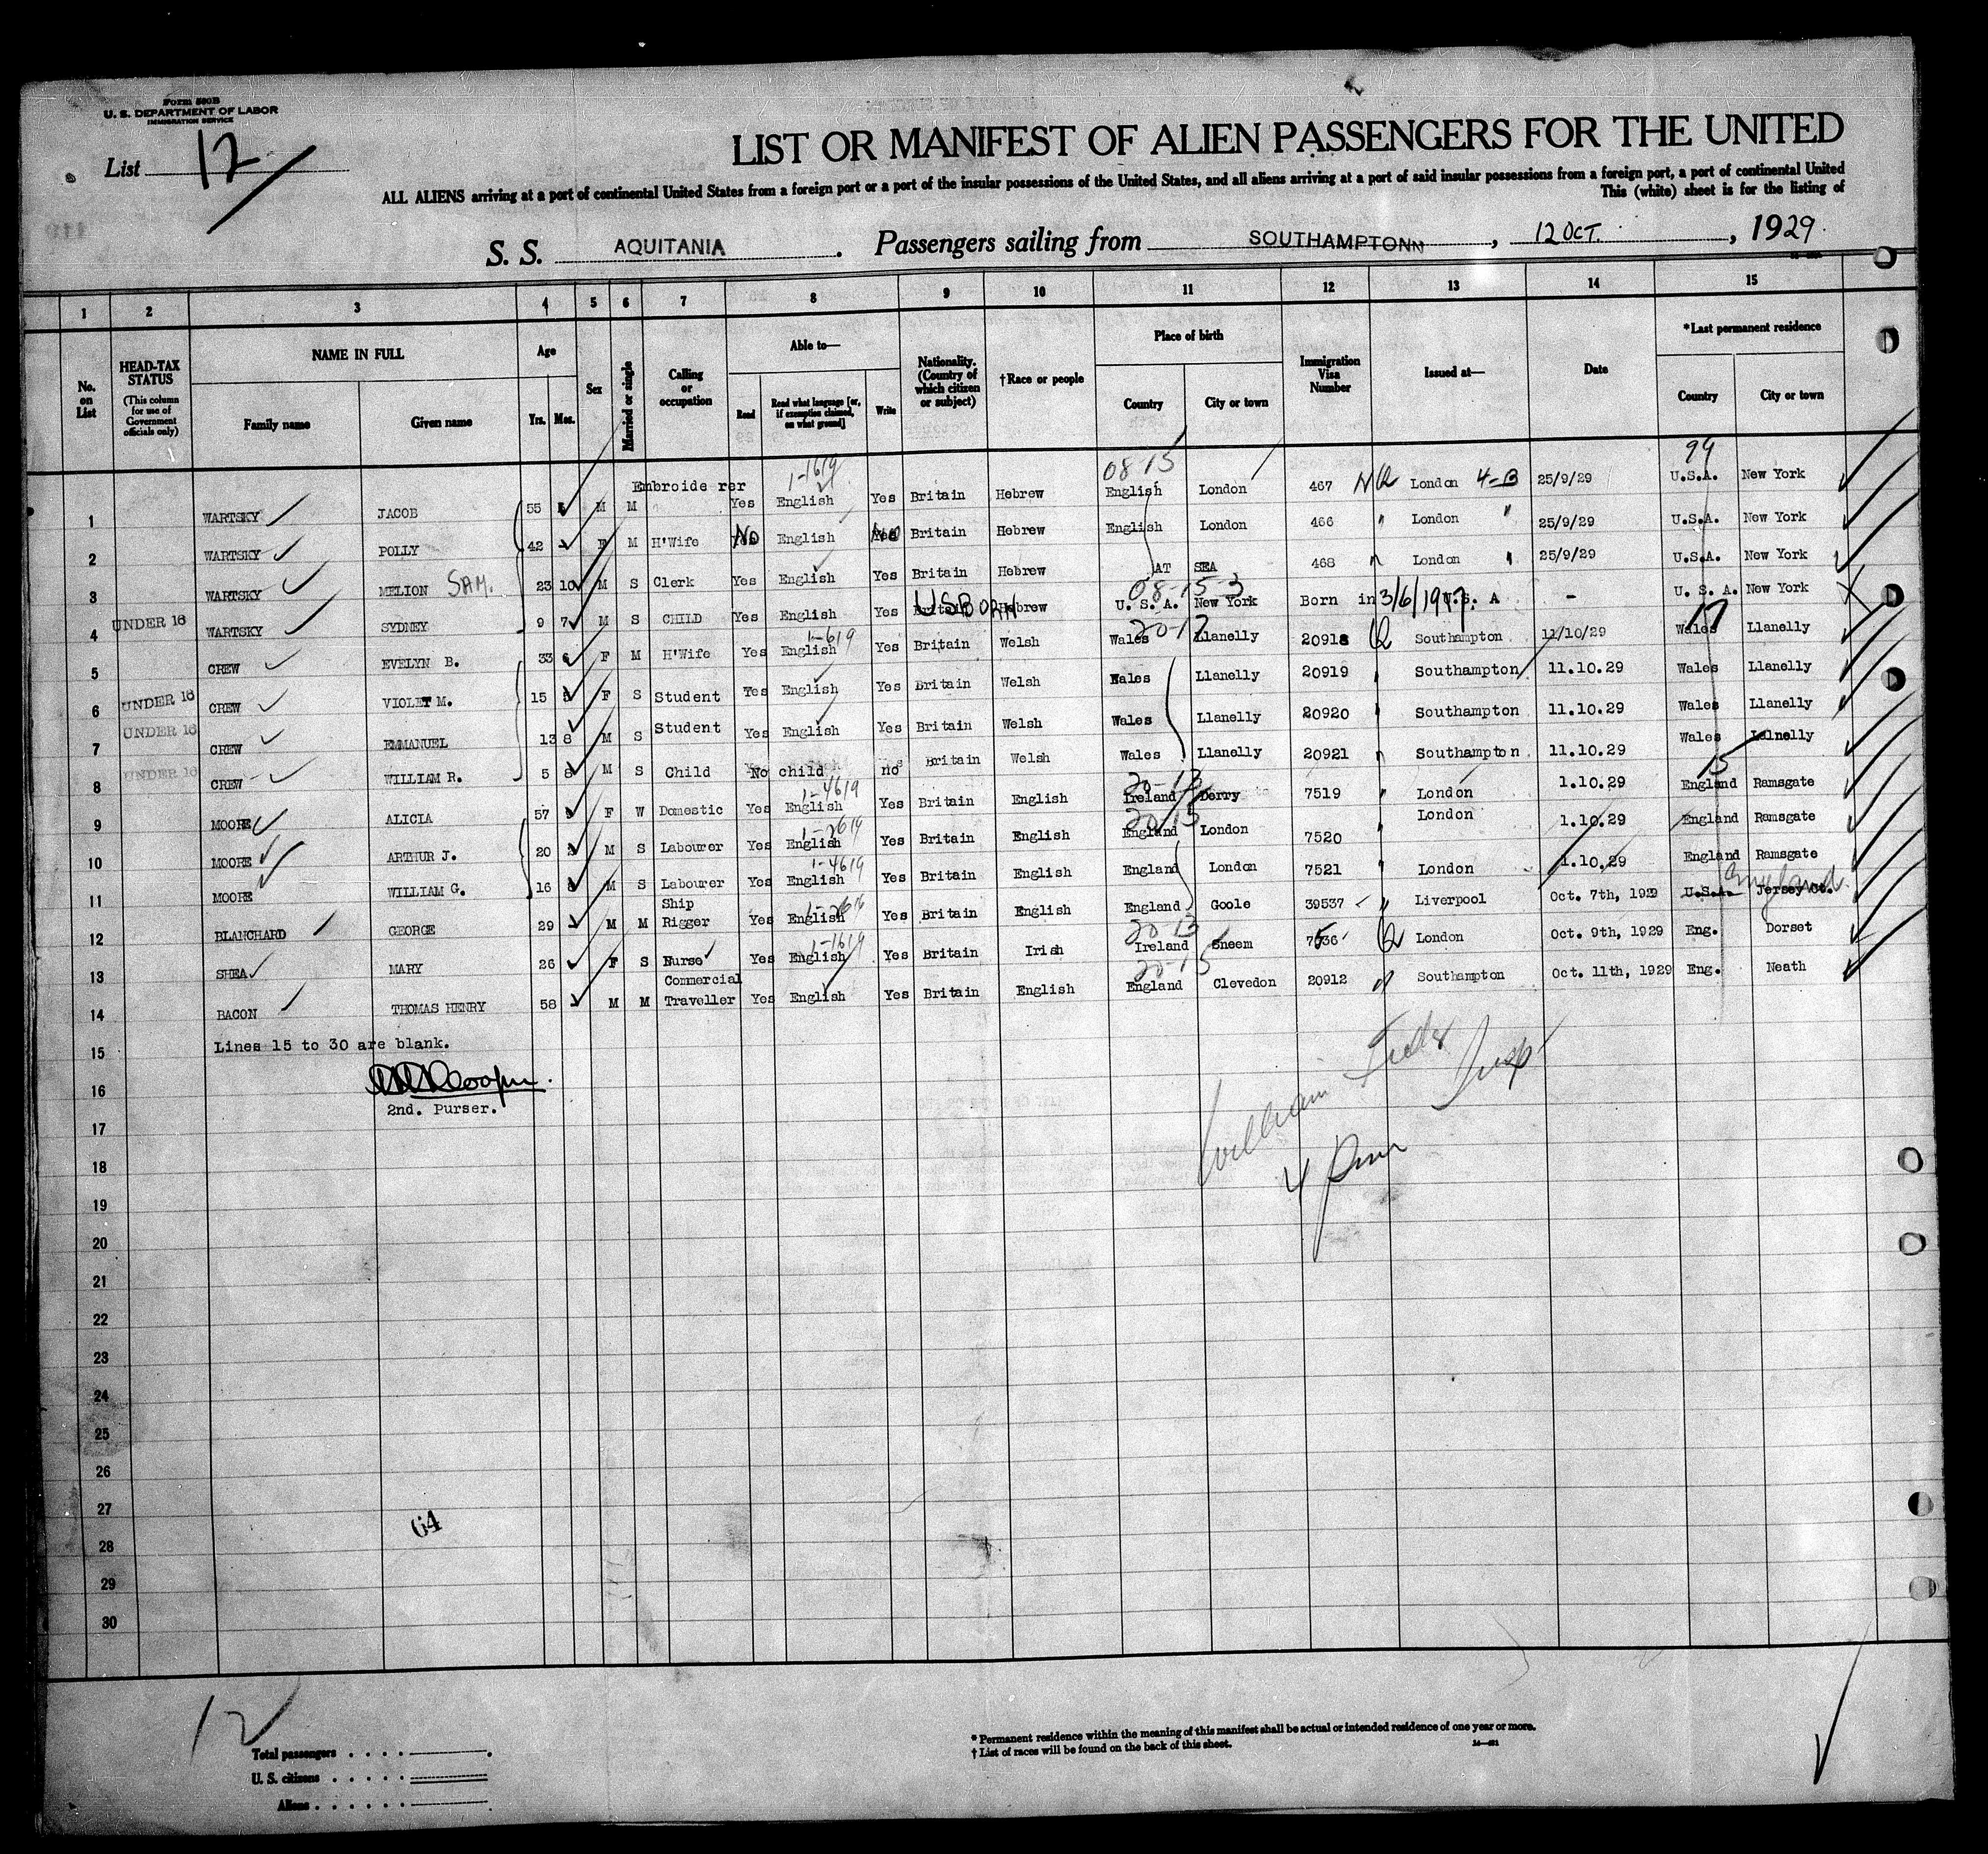 Form 500B
U. S. DEPARTMENT OF LABOR
IMMIGRATION SERVICE
List 12
LIST OR MANIFEST OF ALIEN PASSENGERS FOR THE UNITED
ALL ALIENS arriving at a port of continental United States from a foreign port or a port of the insular possessions of the United States, and all aliens arriving at a port of said insular possessions from a foreign port, a port of continental United
This (white) sheet is for the listing of
S. S. AQUITANIA . Passengers sailing from SOUTHAMPTON , 12 OCT. , 1929.
1 2 3 4 5 6 7 8 9 10 11 12 13 14 15
No. on List
HEAD-TAX STATUS (This column for use of Government officials only)
NAME IN FULL
Family name Given name
Age
Yrs. Mos.
Sex
Married or single
Calling or occupation
Able to—
Read Read what language [or, if exemption claimed, on what ground] Write
Nationality. (Country of which citizen or subject)
†Race or people
Place of birth
Country City or town
Immigration Visa Number
Issued at—
Date
*Last permanent residence
Country City or town
1 WARTSKY JACOB 55 M M Embroiderer Yes English 1-1619 Yes Britain Hebrew 08-15 English London 467 NQ London 4-B 25/9/29 94 U.S.A. New York
2 WARTSKY POLLY 42 F M H'Wife No English No Britain Hebrew English London 466 " London " 25/9/29 U.S.A. New York
3 WARTSKY MELION SAM. 23 10 M S Clerk Yes English Yes Britain Hebrew AT SEA 468 " London " 25/9/29 U.S.A. New York
4 UNDER 16 WARTSKY SYDNEY 9 7 M S CHILD Yes English Yes Britain USBORN Hebrew 08-15-3 U. S. A. New York Born in U. S. A - U. S. A. New York
5 CREW EVELYN B. 33 6 F M H'Wife Yes English 1-619 Yes Britain Welsh 20-17 Wales Llanelly 20918 Q Southampton 11/10/29 17 Wales Llanelly
6 UNDER 16 CREW VIOLET M. 15 F S Student Yes English Yes Britain Welsh Wales Llanelly 20919 " Southampton 11.10.29 Wales Llanelly
7 UNDER 16 CREW EMMANUEL 13 8 M S Student Yes English Yes Britain Welsh Wales Llanelly 20920 " Southampton 11.10.29 Wales Llanelly
8 UNDER 16 CREW WILLIAM R. 5 8 M S Child No child no Britain Welsh Wales Llanelly 20921 " Southampton 11.10.29 Wales Lalnelly
9 MOORE ALICIA 57 F W Domestic Yes English 1-4619 Yes Britain English 20-13 Ireland Derry 7519 " London 1.10.29 15 England Ramsgate
10 MOORE ARTHUR J. 20 M S Labourer Yes English 1-2619 Yes Britain English 20-15 England London 7520 " London 1.10.29 England Ramsgate
11 MOORE WILLIAM G. 16 M S Labourer Yes English 1-4619 Yes Britain English England London 7521 " London 1.10.29 England Ramsgate
12 BLANCHARD GEORGE 29 M M Ship Rigger Yes English 1-2619 Yes Britain English England Goole 39537 " Liverpool Oct. 7th, 1929 U.S.A. Jersey Ct. England
13 SHEA MARY 26 F S Nurse Yes English 1-1619 Yes Britain Irish 20-13 Ireland Sneem 7536 Q London Oct. 9th, 1929 Eng. Dorset
14 BACON THOMAS HENRY 58 M M Commercial Traveller Yes English Yes Britain English 20-15 England Clevedon 20912 " Southampton Oct. 11th, 1929 Eng. Neath
15 Lines 15 to 30 are blank.
16
2nd. Purser.
17
18
19
20
21
22
23
24
25
26
27
64
28
29
30
William
12
Total passengers
U. S. citizens
Aliens
* Permanent residence within the meaning of this manifest shall be actual or intended residence of one year or more.
† List of races will be found on the back of this sheet.